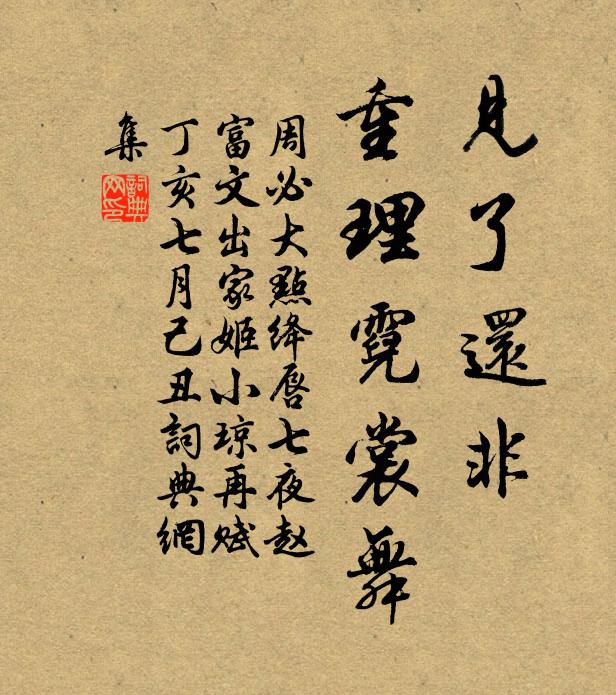 見了還非
重理霓裳舞
周必大點絳唇七夜趙
富文出家姬小瓊再賦
丁亥七月己丑詞典網
集
詞典網印